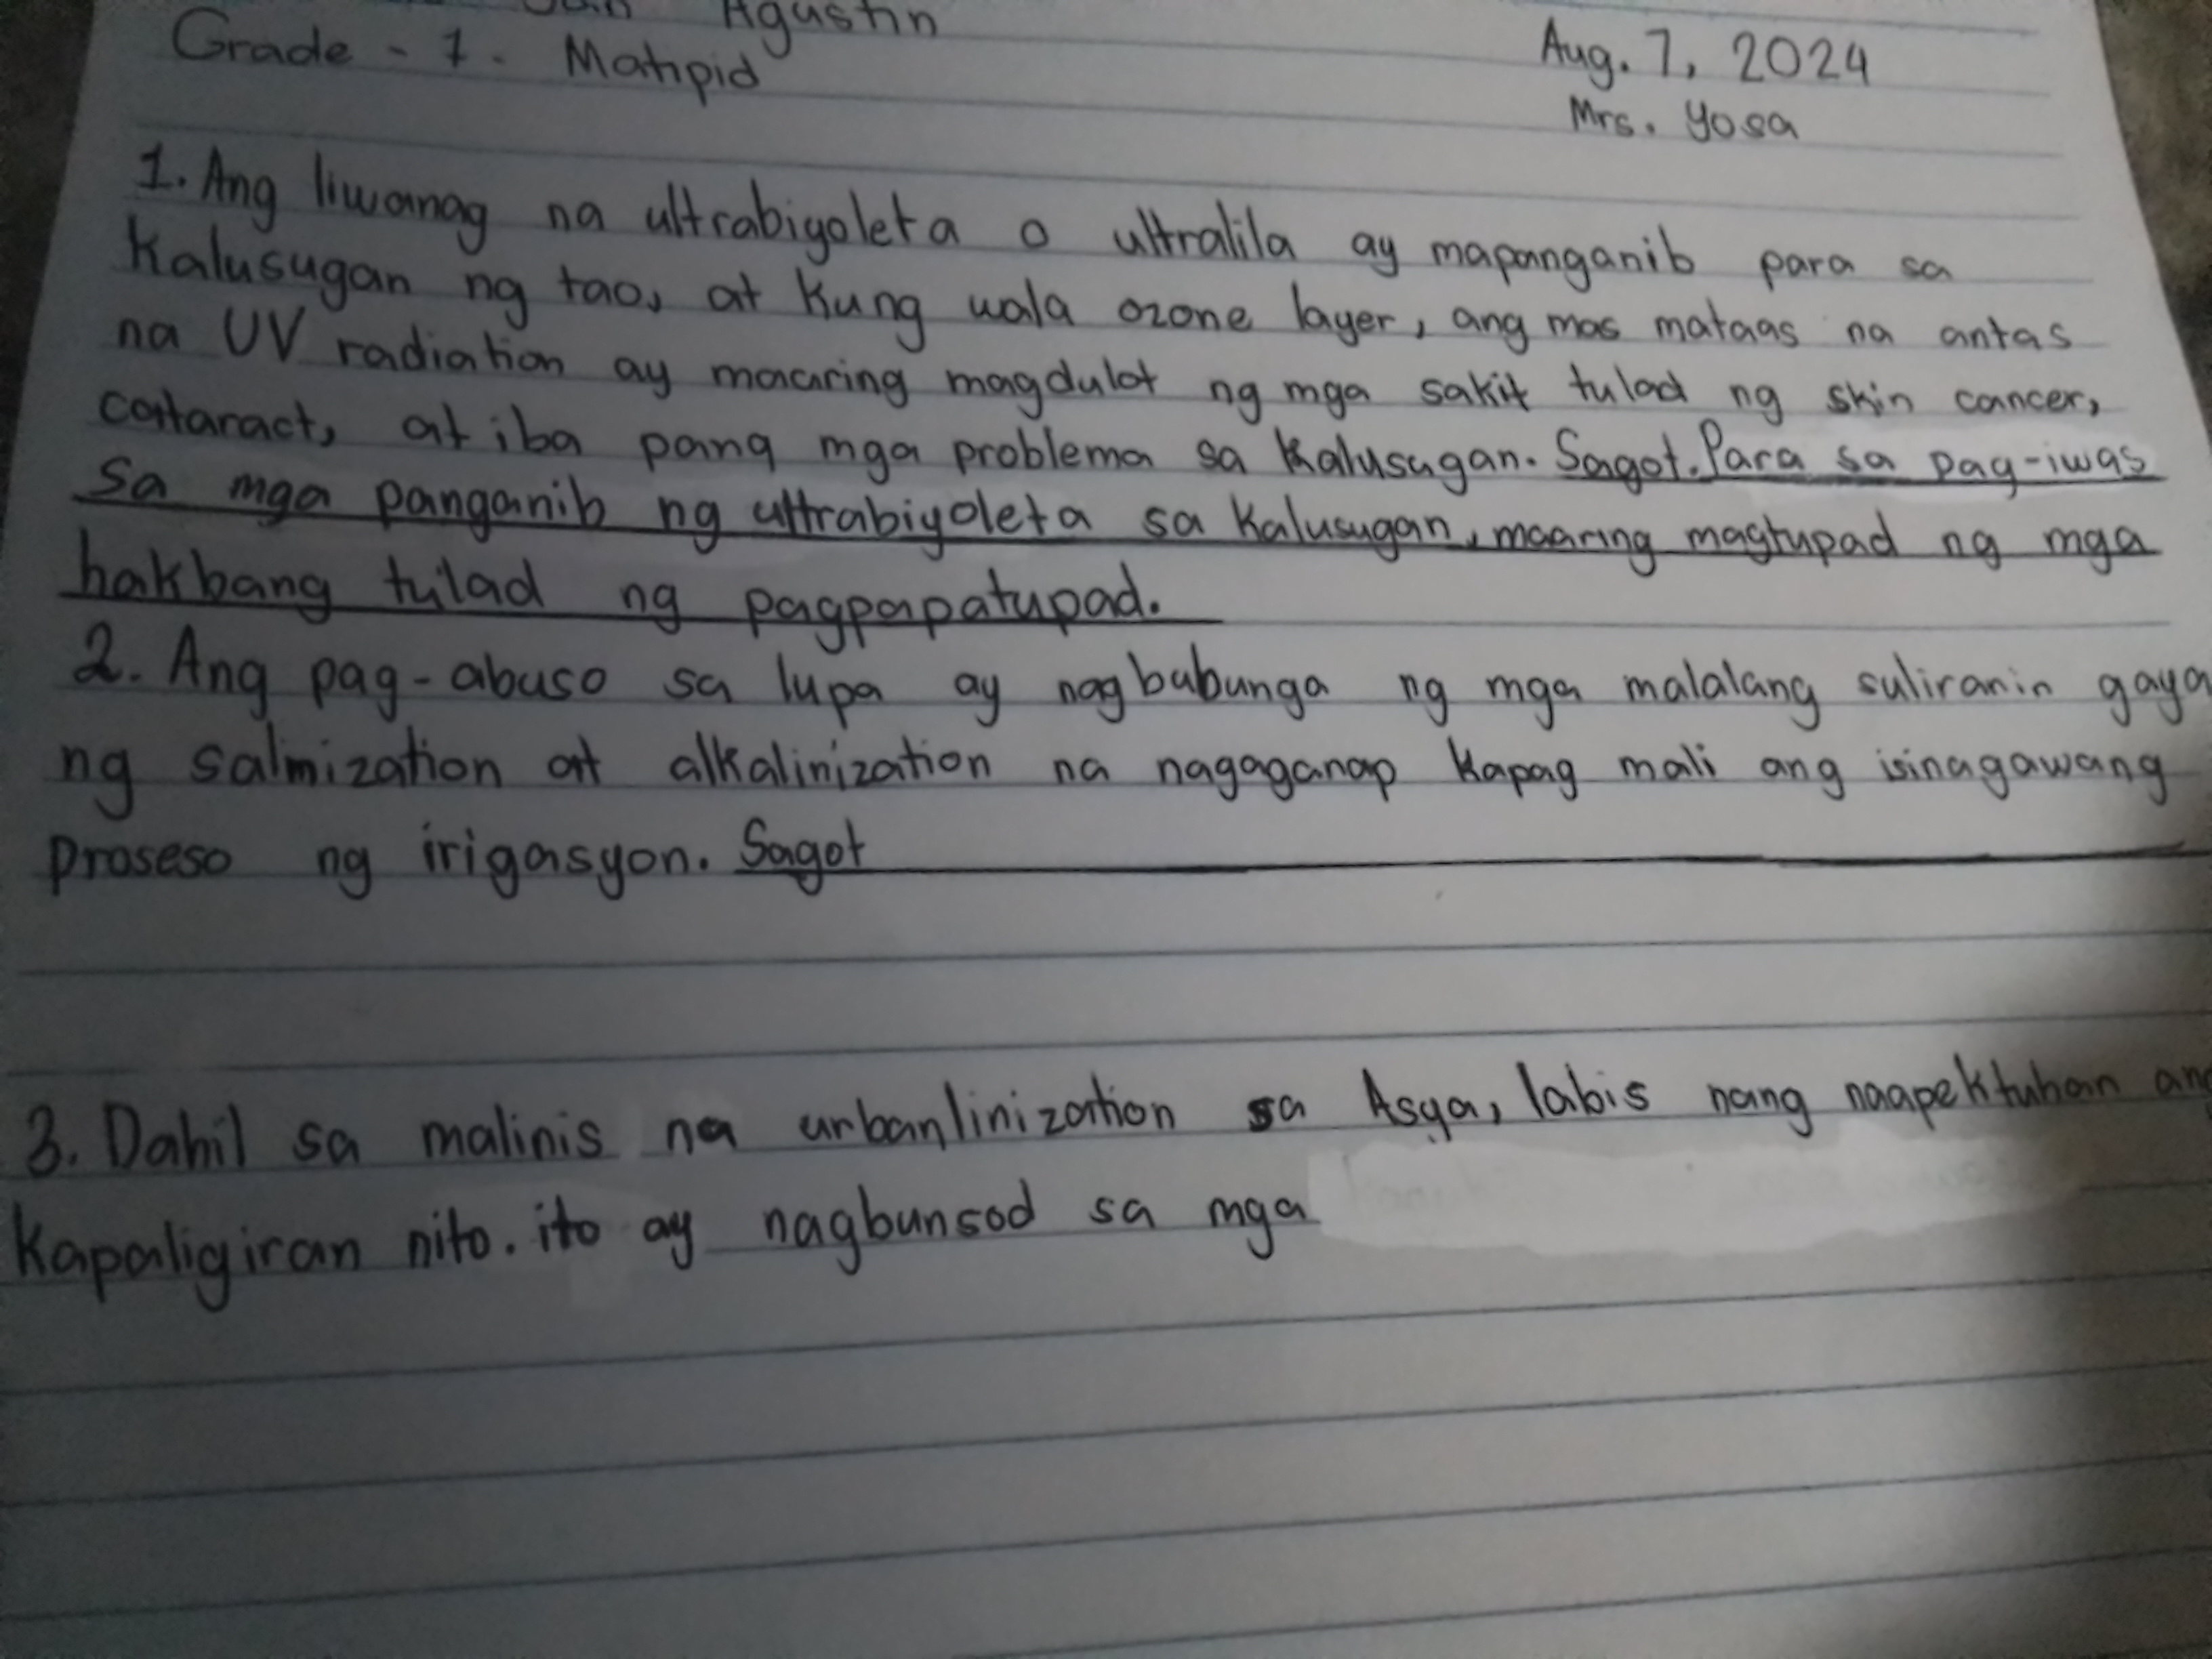 Agustin
Aug. 7, 2024
Grade - 7 - Matipid
Mrs. Yosa
1. Ang liwanag na ultrabiyoleta o ultralila ay mapanganib para sa
kalusugan ng tao, at kung wala ozone layer, ang mas mataas na antas
na UV radiation ay maaring magdulot ng mga sakit tulad ng skin cancer,
cataract, at iba pang mga problema sa kalusugan. Sagot. Para sa pag-iwas
sa mga panganib ng ultrabiyoleta sa kalusugan, maaring magtupad ng mga
hakbang tulad ng pagpapatupad.
2. Ang pag-abuso sa lupa ay nagbubunga ng mga malalang suliranin gaya
ng salinization at alkalinization na nagaganap kapag mali ang isinagawang
proseso ng irigasyon. Sagot
3. Dahil sa malinis na urbanlinization sa Asya, labis nang naapektuhan ang
kapaligiran nito. ito ay nagbunsod sa mga